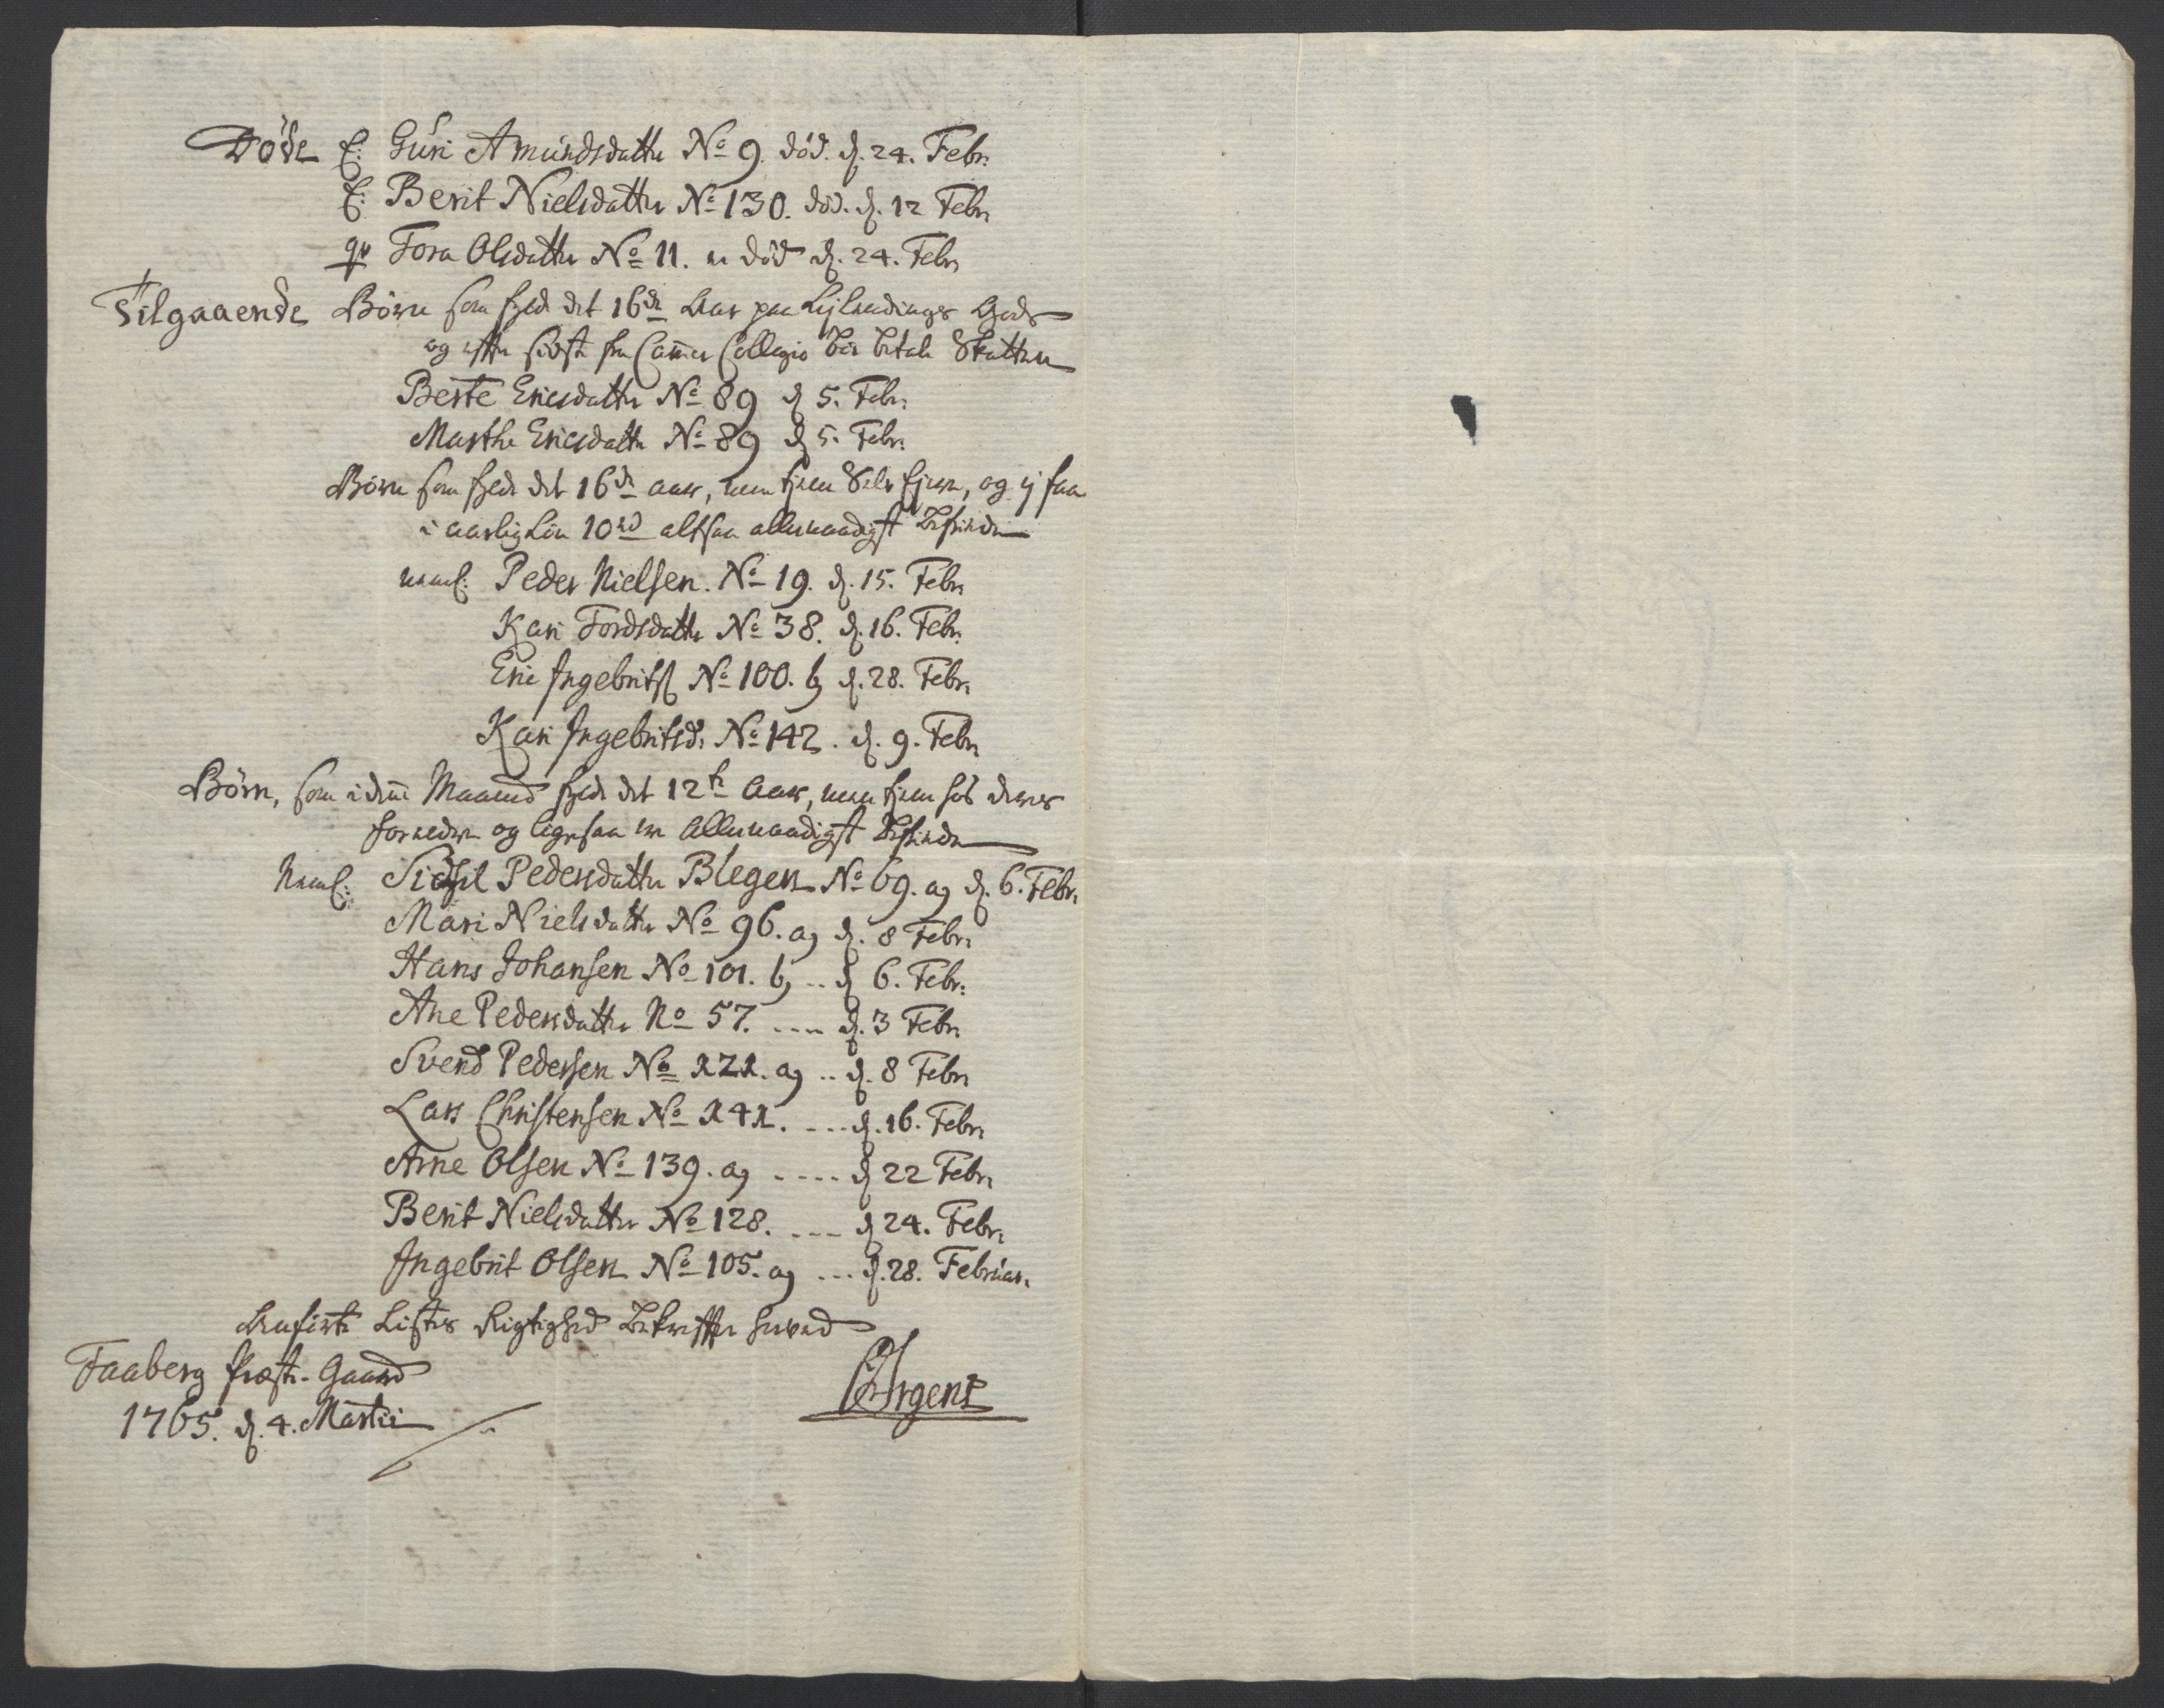 Døde E: Guri Amundsdatter No 9. død. d. 24. Febr.
E: Berit Nielsdatter No 130. død. d. 12 Febr
qv Tora Olsdatter No 11. er død d. 24. Febr
Tilgaaende Børn som fyld det 16de Aar paa Lejlendings Gods
og efter sidste fra Cammer Collegio bør betale Skatten
Berte Ericsdatter No 89 d 5. Febr.
Marthe Ericsdatter No 89 d 5. Febr.
Børn som fylde det 16de aar, men tjene Selv Ejere, og ej faa
i aarlig Løn 10rd altsaa allernaadigst befriede
neml: Peder Nielsen. No 19. d. 15. Febr
Kari Tordsdatter No 38. d. 16. Febr.
Eric Ingebritss No 100. b) d. 28. Febr.
Kari Ingebritsd. No 142. d. 9. Febr
Børn, som i denne Maaned fylde det 12te Aar, men tjene hos deres
forældre og ligesaa ere Allernaadigst befriede
Neml: Sidsil Pedersdatter Blegen No 69. a) d. 6. Febr.
Mari Nielsdatter No 96. a) d. 8 Febr.
Hans Johansen No 101. b) .. d 6. Febr.
Ane Pedersdatter No 57. .... d. 3 Febr
Svend Pedersen No 121. a) .. d. 8 Febr
Lars Christensen No 141. ... d. 16. Febr
Arne Olsen No 139. a) .... d 22 Febr
Berit Nielsdatter No 128. ... d 24. Febr.
Ingebrit Olsen No 105. a) ... d. 28. Februar.
Anførte Listes Rigtighed bekræfter herved
Faaberg Præste-Gaard
1765. d. 4. Martii
Ørgens